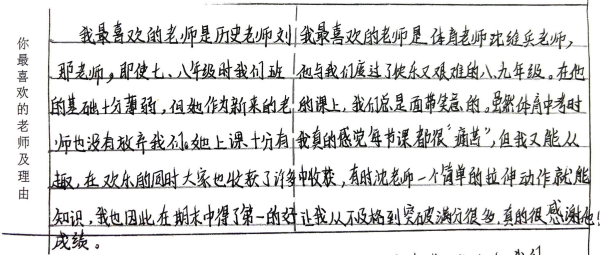 你最喜欢的老师及理由
我最喜欢的老师是历史老师刘
耶老师,即使七、八年级时我们班
的基础十分薄弱,但她作为新来的老
师也没有放弃我们。她上课十分有
趣,在欢乐的同时大家也收获了许多
知识,我也因此在期末中得了第一的好
成绩。
我最喜欢的老师是体育老师沈维兵老师,
他与我们度过了快乐又艰难的八、九年级。在他
的课上,我们总是面带笑意的。虽然体育中考时
我真的感觉每节课都很“痛苦”,但我又能从
中收获,有时沈老师一个简单的拉伸动作就能
让我从不及格到突破满分很多,真的很感谢他!